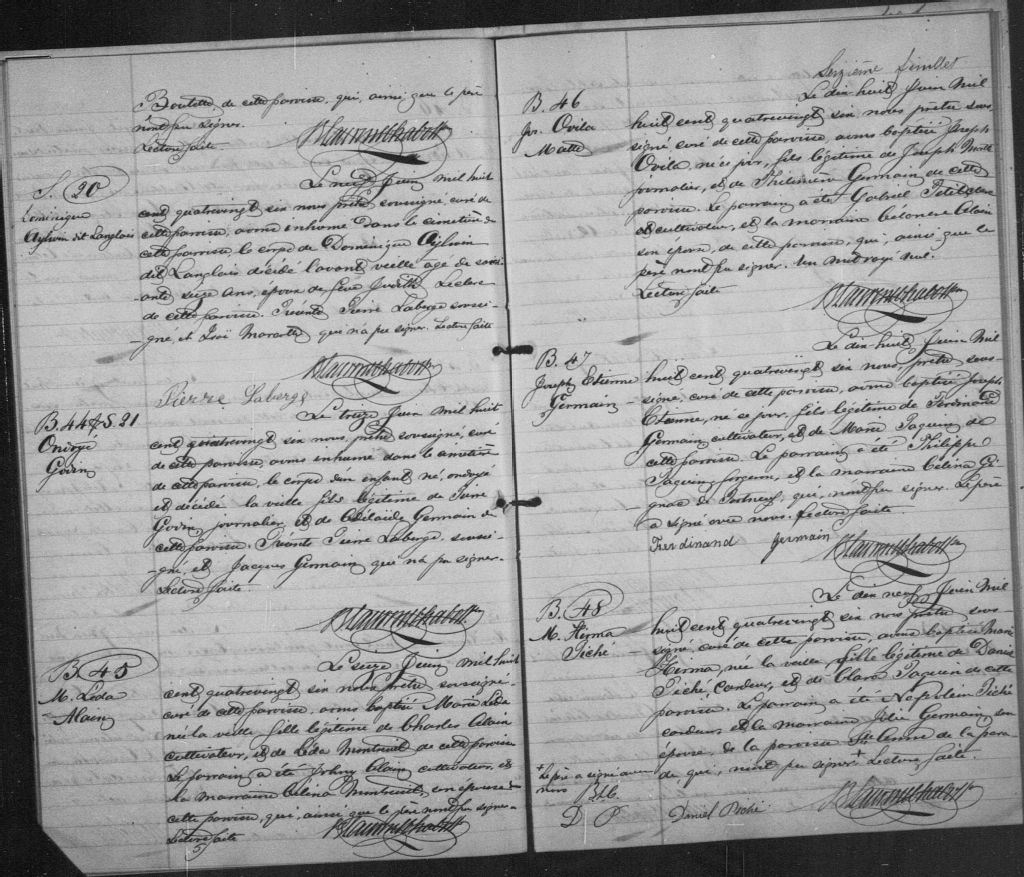 Boutette, de cette paroisse, qui, ainsi que le père
n'ont su signer.
Lecture faite
S. 20
Dominique
Aylwin dit Langlois
Le neuf Juin mil huit
cent quatrevingt six nous prêtre soussigné, curé de
cette paroisse, avons inhumé dans le cimetière de
cette paroisse, le corps de Dominique Aylwin
dit Langlais décédé l'avant veille agé de soix-
-ante seize ans, époux de feue Judith Leclerc
de cette paroisse. Présents Pierre Laberge soussi-
-gné, et Morasse qui n'a pu signer. Lecture faite
Pierre Laberge
B. 44 & S. 21
Ondoyé
Godin
Le treize Juin mil huit
cent quatrevingt six nous, prêtre soussigné, curé
de cette paroisse, avons inhumé dans le cimetière
de cette paroisse, le corps d'un enfant né, ondoyé
et décédé la veille fils légitime de
Godin, journalier, et de Adelaide Germain de
cette paroisse. Présents Pierre Laberge, soussi-
-gné, et Jacques Germain qui n'a pu signer.
Lecture faite.
B. 45
M. Léda
Alain
Le seize Juin mil huit
cent quatrevingt six nous prêtre soussigné
curé de cette paroisse, avons baptisé Marie Léda
né la veille fille légitime de Charles Alain
cultivateur, et de Léda Montreuil de cette paroisse
Le parrain a été Johny Alain cultivateur, et
la marraine Célina Montreuil, son épouse de
cette paroisse, qui, ainsi que le père n'ont su signer
Lecture faite
Seizième feuillet
B. 46
Jos. Ovila
Matte
Le dix huit Juin mil
huit cent quatrevingt six, nous prêtre sous-
signé curé de cette paroisse avons baptisé Joseph
Ovila, né ce jour, fils légitime de Joseph Matte
journalier, et de Philomène Germain de cette
paroisse. Le parrain a été Gabriel
cultivateur, et la marraine Alain
son épouse, de cette paroisse, qui, ainsi que le
père n'ont su signer. Un mot rayé nul.
Lecture faite
B. 47
Joseph Etienne
Germain
Le dix huit Juin mil
huit cent quatrevingt six nous, prêtre sous-
signé, curé de cette paroisse, avons baptisé Joseph
Etienne, né ce jour, fils légitime de Ferdinand
Germain cultivateur, et de Marie Paquin de
cette paroisse. Le parrain a été Philippe
Paquin, forgeron, et la marraine Célina Gi-
gnac de Portneuf, qui, n'ont su signer. Le père
a signé avec nous. Lecture faite.
Ferdinand Germain
B. 48
M. Hirma
Piché
Le dix neuf Juin mil
huit cent quatrevingt six nous prêtre sous-
signé, curé de cette paroisse, avons baptisé Marie
Hirma, née la veille, fille légitime de Daniel
Piché, Cordeur, et de Clara Paquin de cette
paroisse. Le parrain a été Napoléon Piché
cordeur et la marraine Julie Germain, son
épouse, de la paroisse Ste Anne de la para-
de qui, n'ont su signer. + Lecture faite.
+ Le père a signé avec
nous
D P
Daniel Piché